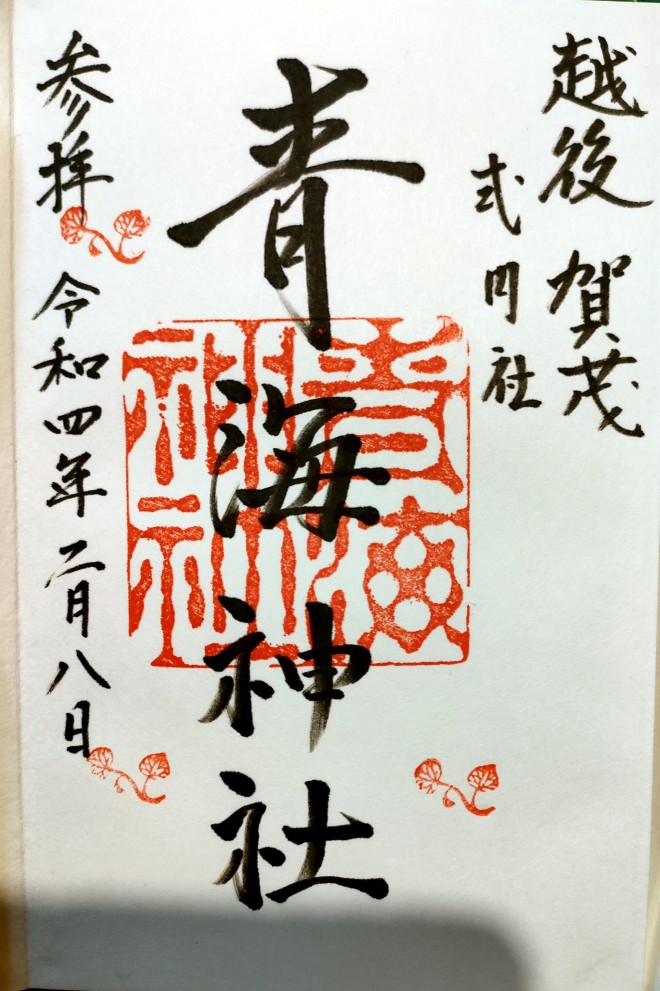 越後 賀茂
式内社
青海神社
参拝
令和四年二月八日
青海神社